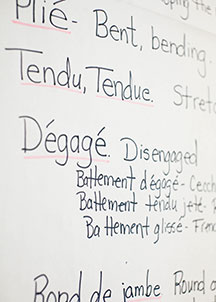 the
Plié - Bent, bending.
Tendu, Tendue.
Dégagé. Disengaged
Battement dégagé -
Battement tendu jeté -
Battement glissé -
Rond de jambe Round